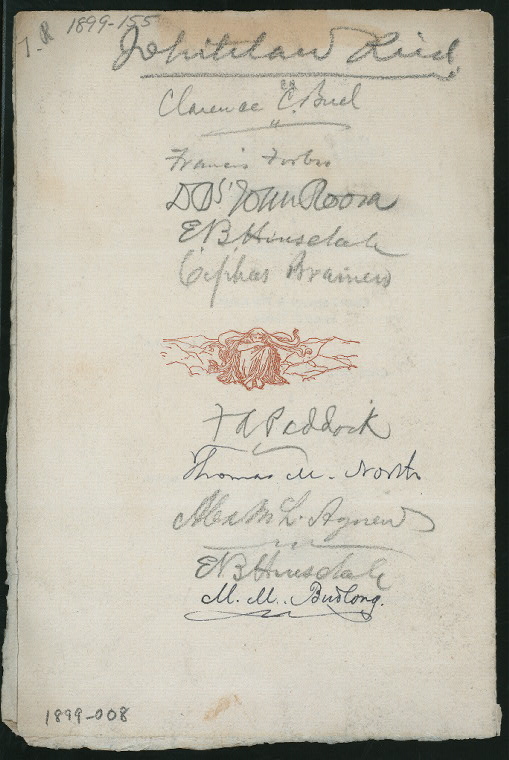 J.R 1899-155
Whitelaw Reid
Clarence C. Buel
Francis Forbes
D B St John Roosa
E.B. Hinsdale
Cephas Brainerd
F A Paddock
Thomas M. North
Alex M L. Agnew
E B Hinsdale
M. M. Budlong.
1899-008